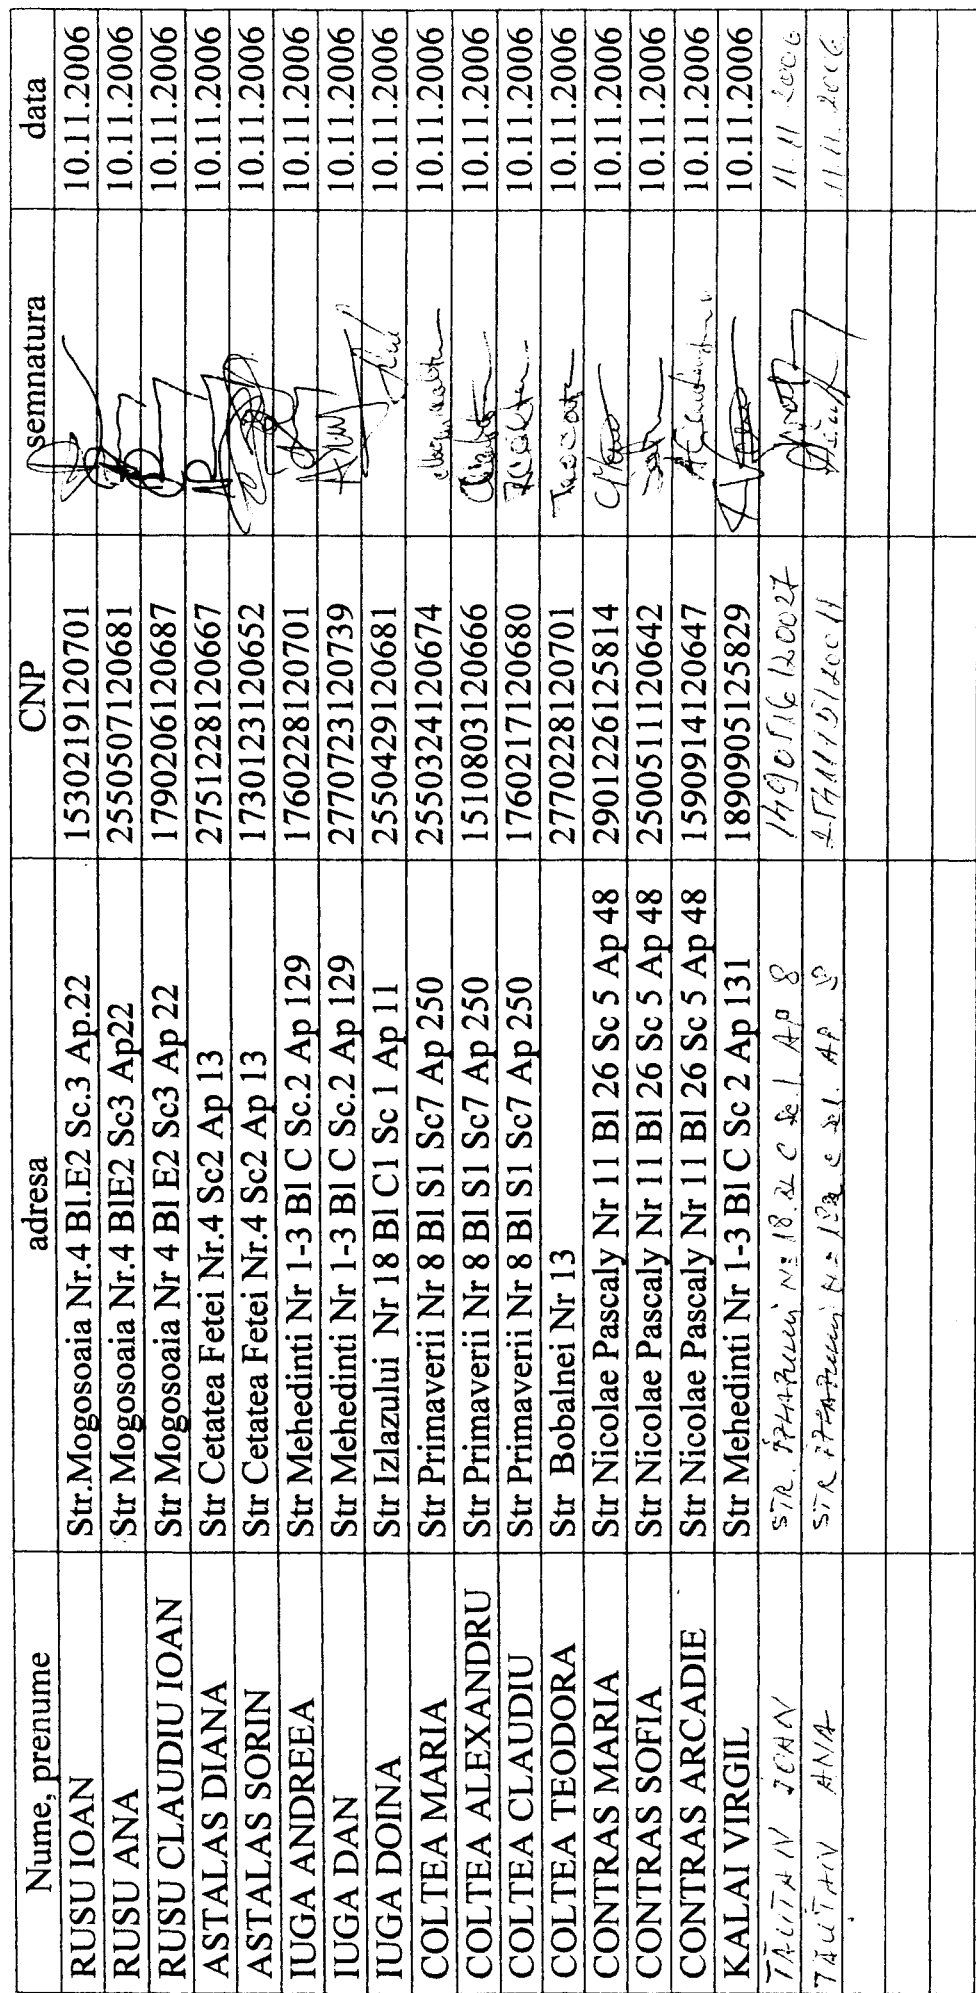 Nume, prenume adresa CNP semnatura data
RUSU IOAN Str.Mogosoaia Nr.4 Bl.E2 Sc.3 Ap.22 1530219120701 10.11.2006
RUSU ANA Str Mogosoaia Nr.4 BlE2 Sc3 Ap22 2550507120681 10.11.2006
RUSU CLAUDIU IOAN Str Mogosoaia Nr 4 Bl E2 Sc3 Ap 22 1790206120687 10.11.2006
ASTALAS DIANA Str Cetatea Fetei Nr.4 Sc2 Ap 13 2751228120667 10.11.2006
ASTALAS SORIN Str Cetatea Fetei Nr.4 Sc2 Ap 13 1730123120652 10.11.2006
IUGA ANDREEA Str Mehedinti Nr 1-3 Bl C Sc.2 Ap 129 1760228120701 10.11.2006
IUGA DAN Str Mehedinti Nr 1-3 Bl C Sc.2 Ap 129 2770723120739 10.11.2006
IUGA DOINA Str Izlazului Nr 18 Bl C1 Sc 1 Ap 11 2550429120681 10.11.2006
COLTEA MARIA Str Primaverii Nr 8 Bl S1 Sc7 Ap 250 2550324120674 10.11.2006
COLTEA ALEXANDRU Str Primaverii Nr 8 Bl S1 Sc7 Ap 250 1510803120666 10.11.2006
COLTEA CLAUDIU Str Primaverii Nr 8 Bl S1 Sc7 Ap 250 1760217120680 10.11.2006
COLTEA TEODORA Str Bobalnei Nr 13 2770228120701 10.11.2006
CONTRAS MARIA Str Nicolae Pascaly Nr 11 Bl 26 Sc 5 Ap 48 2901226125814 10.11.2006
CONTRAS SOFIA Str Nicolae Pascaly Nr 11 Bl 26 Sc 5 Ap 48 2500511120642 10.11.2006
CONTRAS ARCADIE Str Nicolae Pascaly Nr 11 Bl 26 Sc 5 Ap 48 1590914120647 10.11.2006
KALAI VIRGIL Str Mehedinti Nr 1-3 Bl C Sc 2 Ap 131 1890905125829 10.11.2006
IOAN STR. 18 Sc 1 AP 8 1490516120027 11.11.2006
ANA STR AP 8 11.11.2006